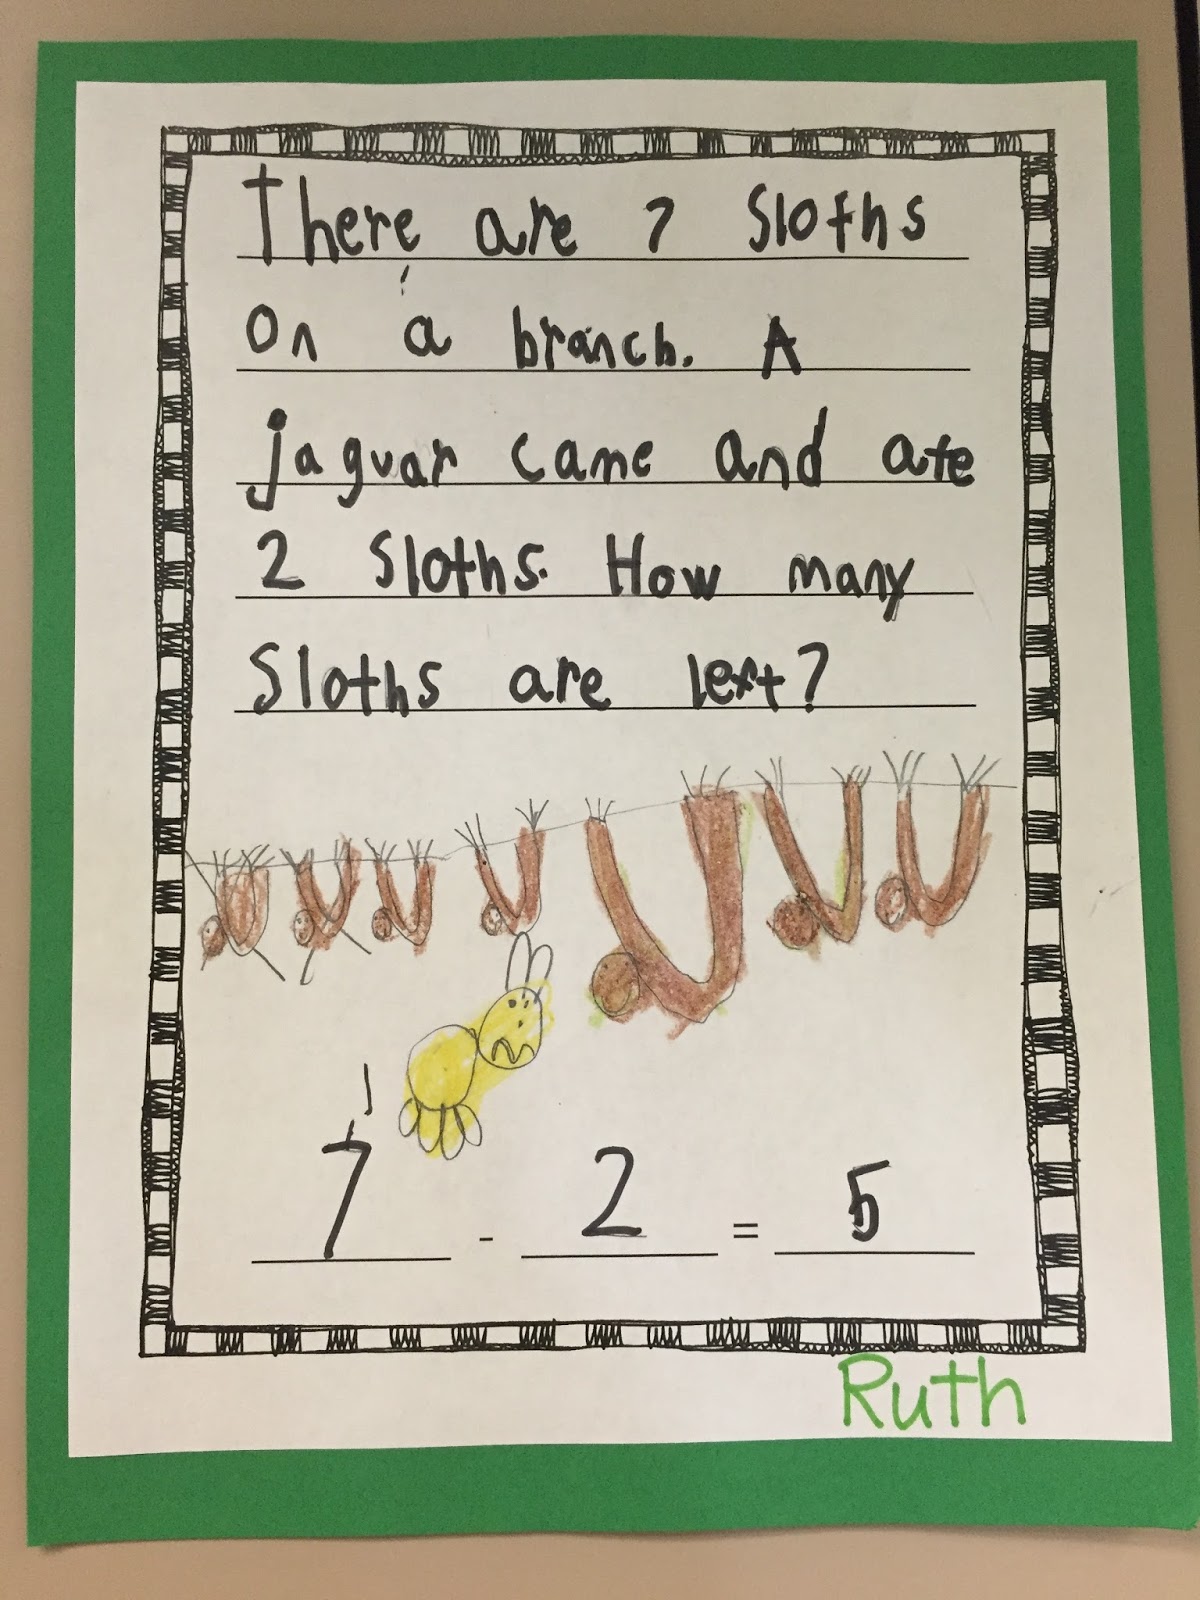 There are 7 Sloths
on a branch. A
jaguar came and ate
2 Sloths. How many
Sloths are left?
7 - 2 = 5
Ruth